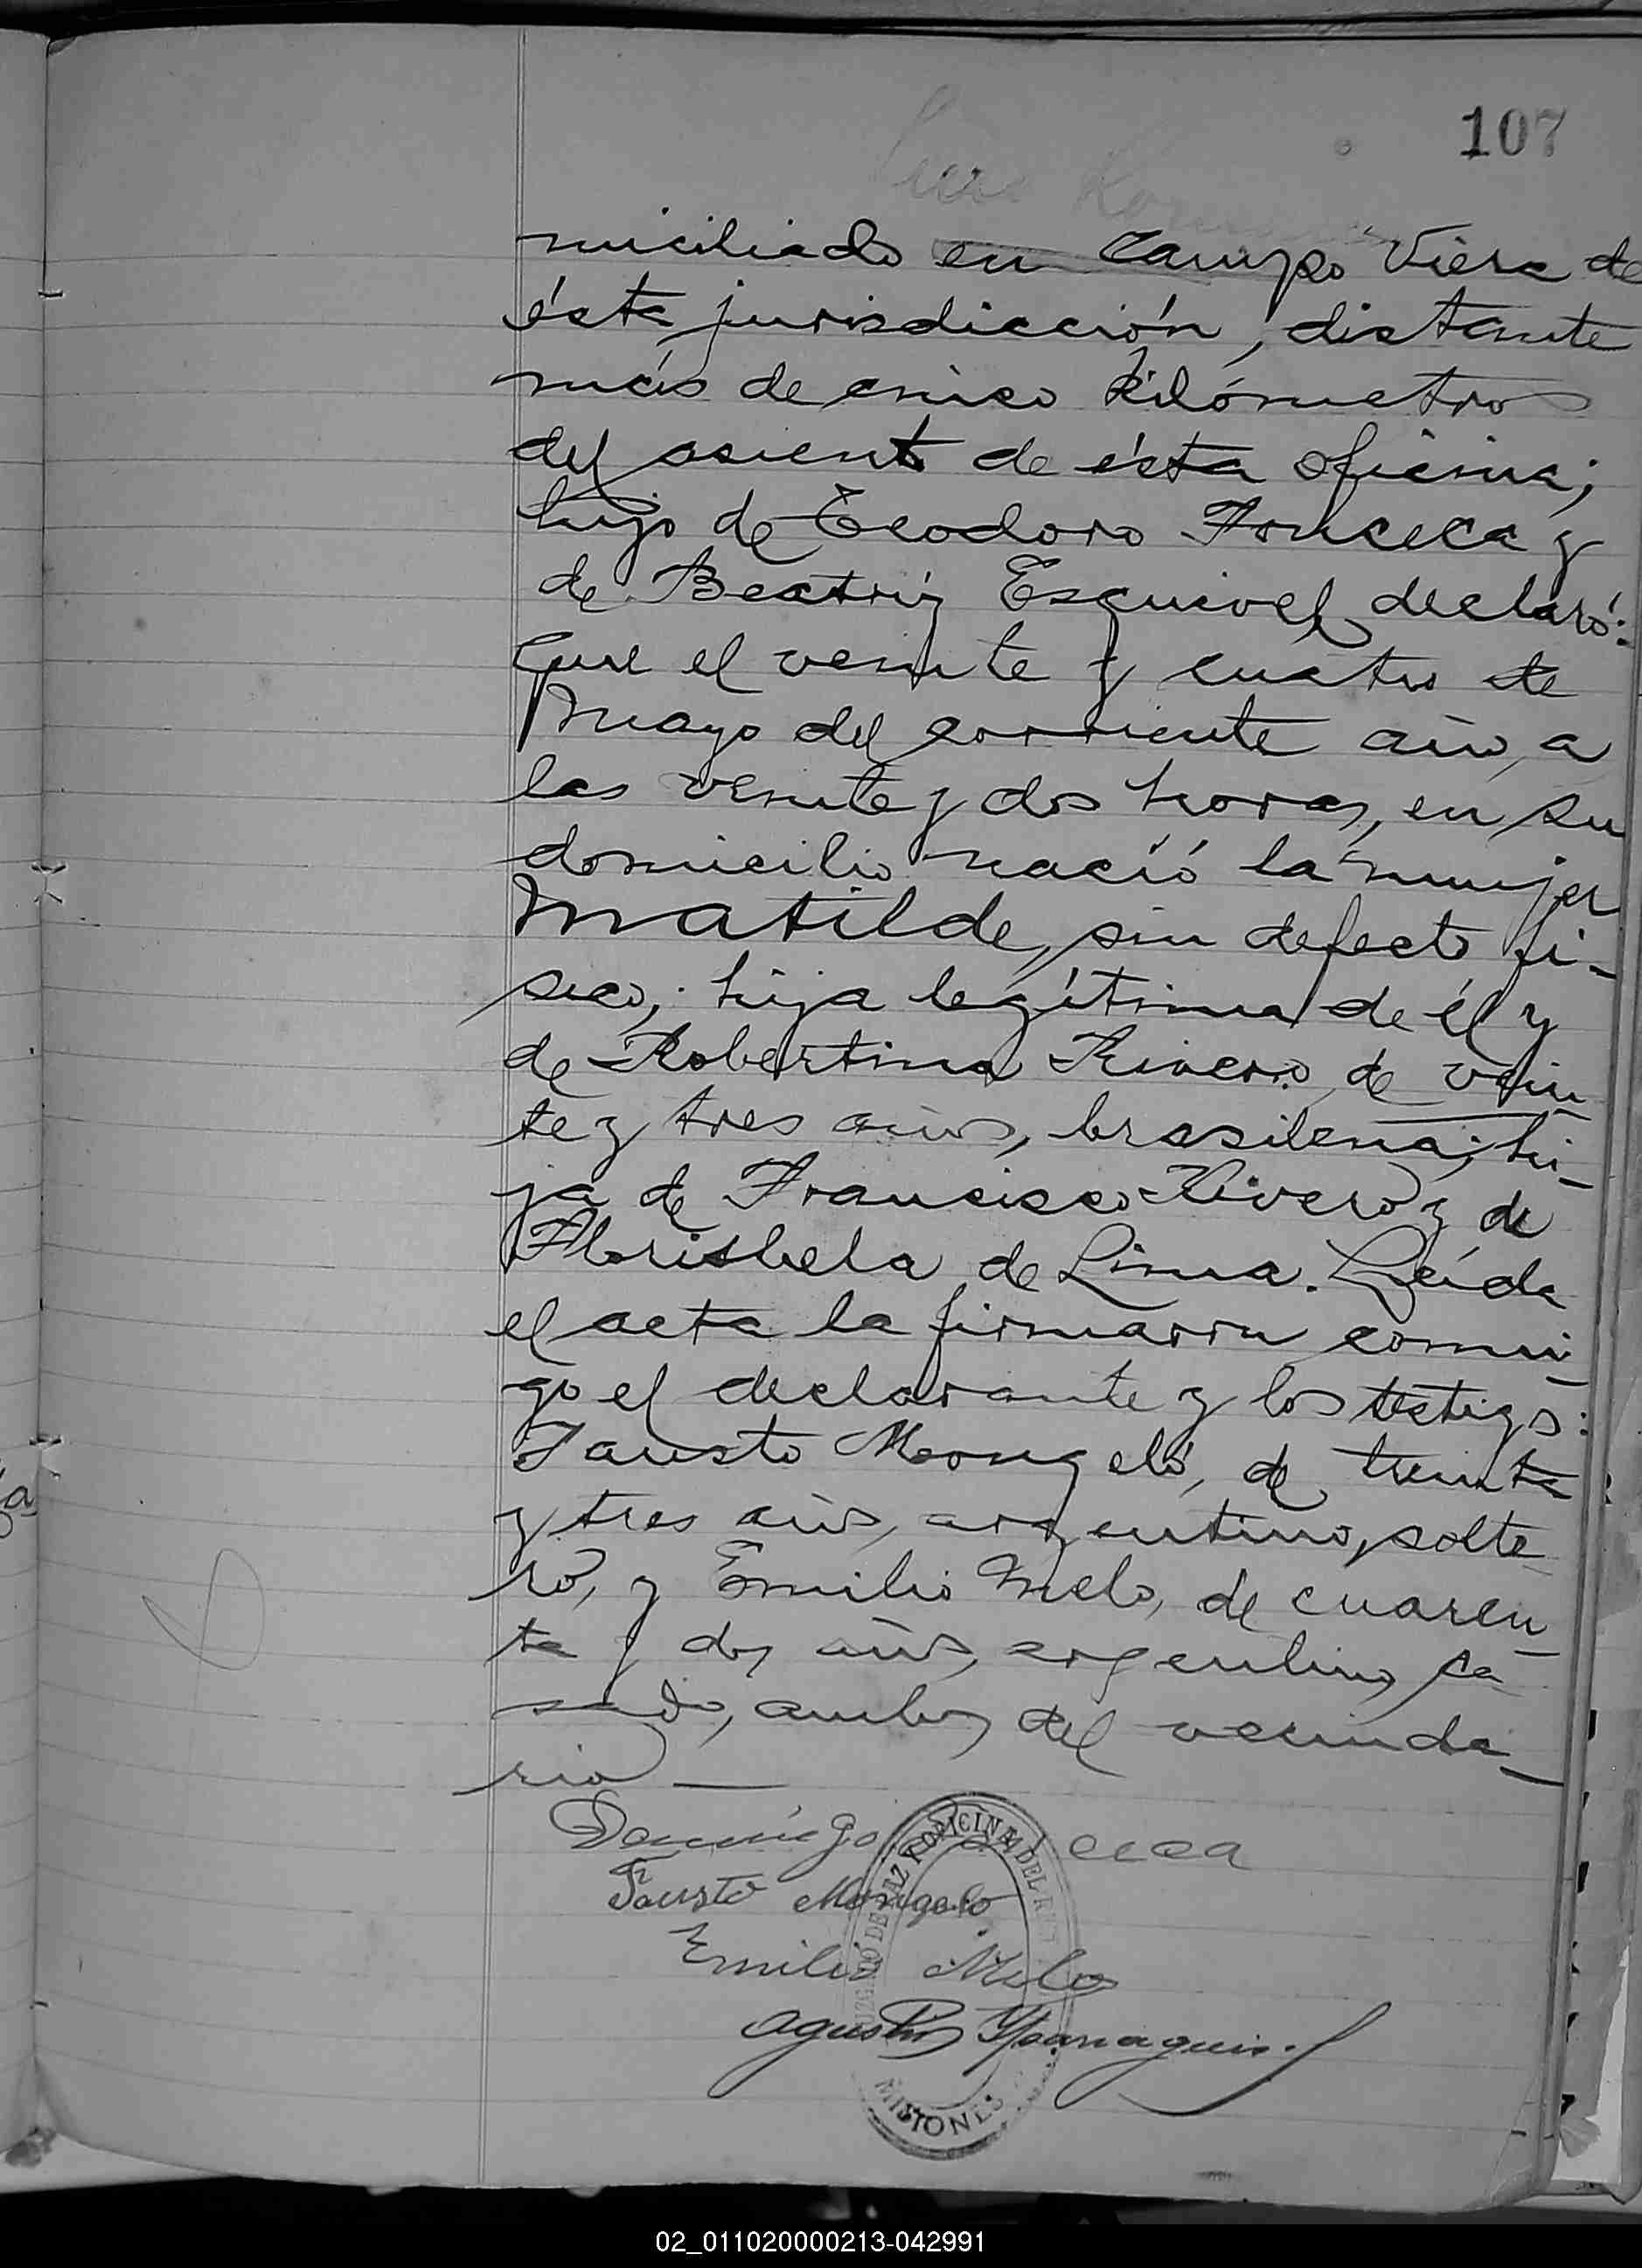 107
miciliado en Campo Viera de
ésta jurisdicción, distante
más de cinco kilómetros
del asiento de ésta oficina;
hijo de Teodoro Fonceca y
de Beatriz Esquivel, declaró:
Que el veinte y cuatro de
Mayo del corriente año, a
las veinte y dos horas, en su
domicilio nació la mujer
Matilde, sin defecto fí-
sico, hija legítima de él y
de Robertina Rivero, de vein-
te y tres años, brasilena; hi-
ja de Francisco Rivero y de
Florisbela de Lima. Leída
el acta la firmaron conmi-
go el declarante y los testigos:
Fausto Mongeló, de treinta
y tres años, argentino, solte
ro, y Emilio Melo, de cuaren-
ta y dos años, argentino, ca
sado, ambos del vecinda-
rio
Domingo
Fausto Mongelo
Emilio Melo
Agustin
JUZGADO DE PAZ Y OFICINA DEL
MISIONES
02_011020000213-042991